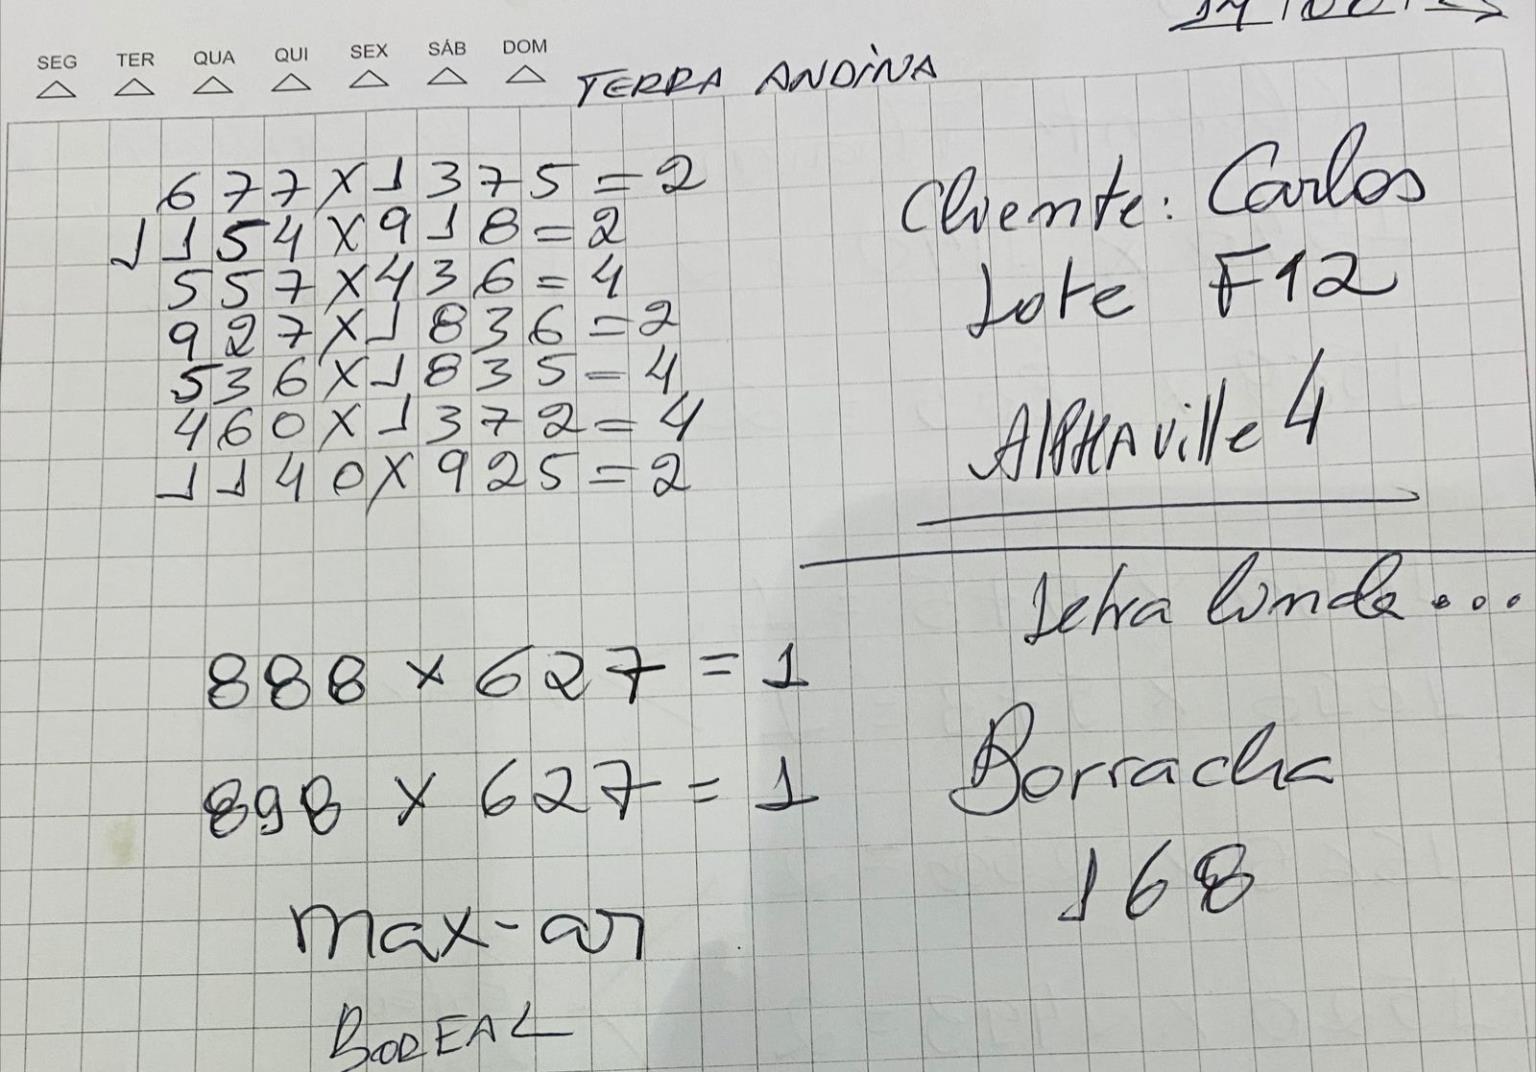 SEG TER QUA QUI SEX SÁB DOM
TERRA ANDINA
677x1375=2
1154x918=2
557x436=4
927x1836=2
536x1835=4
460x1372=4
1140x925=2
Cliente: Carlos
Lote F12
AlPHAville 4
Letra linda...
888 x 627 = 1
898 x 627 = 1
Borracha
168
max-ar
BOREAL